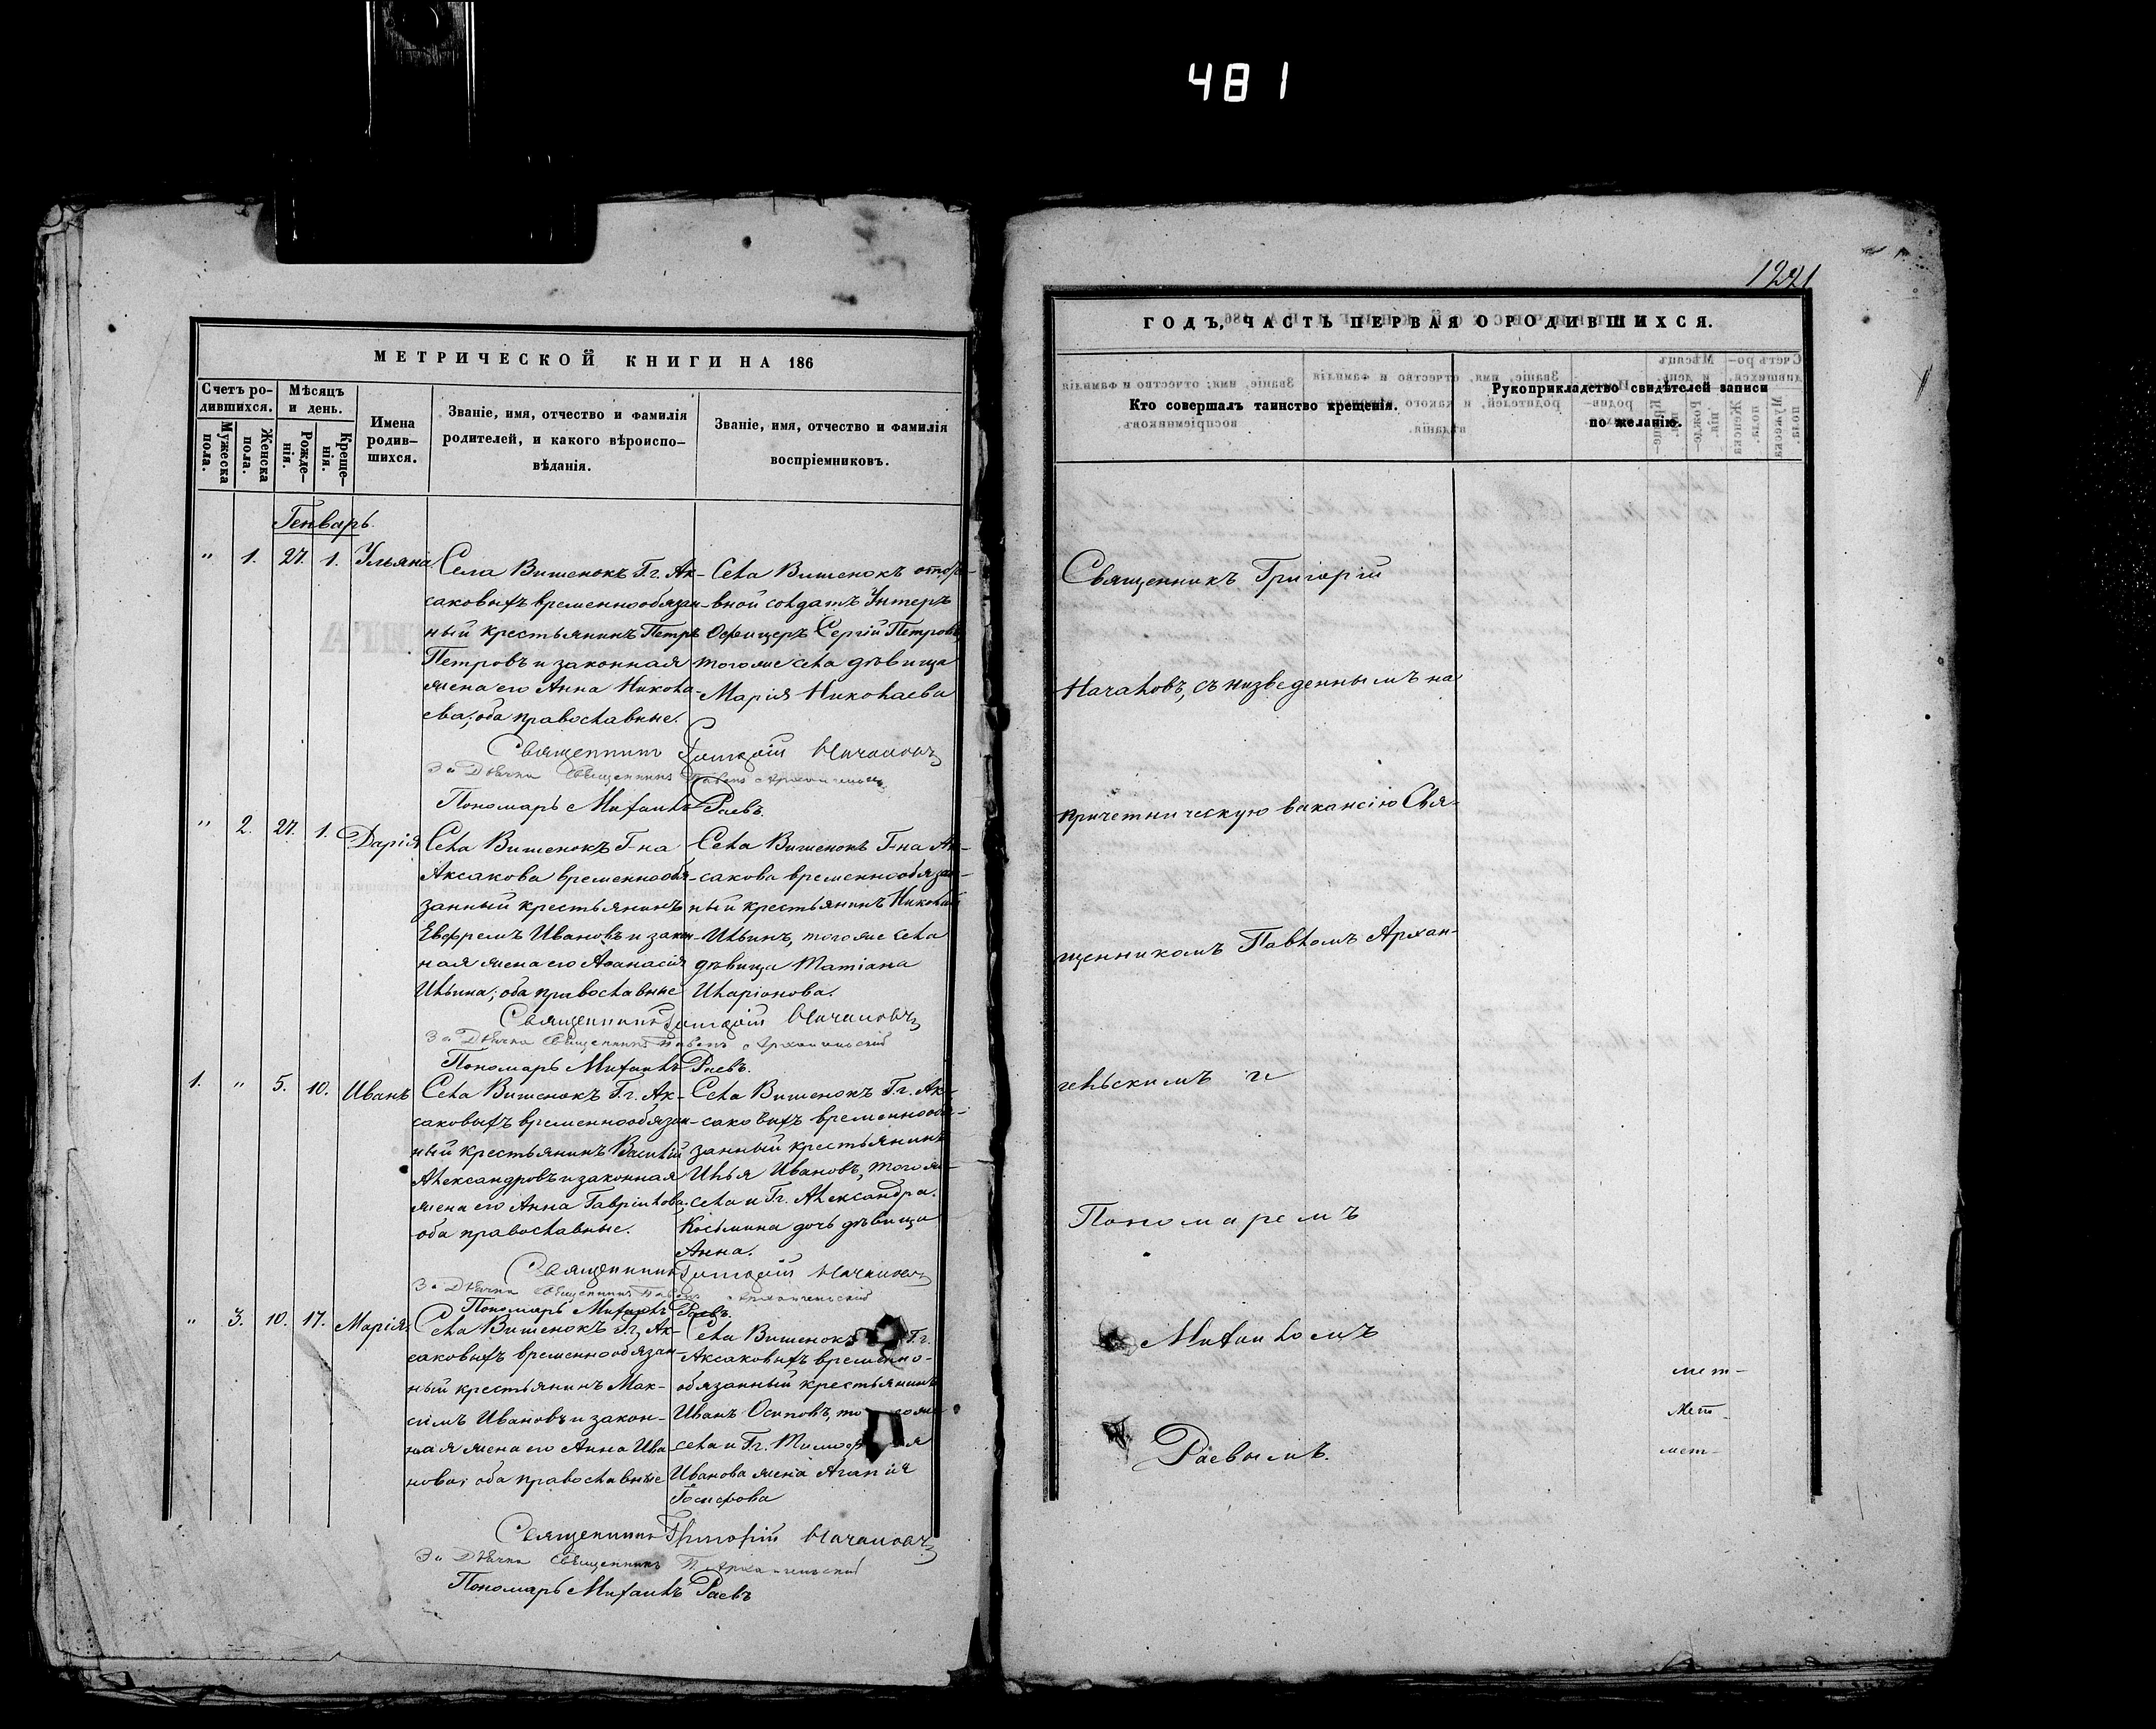 481
1221
МЕТРИЧЕСКОЙ КНИГИ НА 186
Счетъ ро-
дившихся.
Мужеска
пола.
Женска
пола.
Мѣсяцъ
и день.
Рожде-
нія.
Креще-
нія.
Имена
родив-
шихся.
Званіе, имя, отчество и фамилія
родителей, и какого вѣроиспо-
вѣданія.
Званіе, имя, отчество и фамилія
воспріемниковъ.
Генварь.
" 1. 27. 1. Ульяна
Села Вишенокъ Г.г. Ак-
саковыхъ временнообязан-
ный крестьянинъ Петръ
Петровъ и законная
жена его Анна Никола-
ева; оба православные.
Села Вишенокъ
вной солдатъ Унтеръ
Офицеръ Сергій Петровъ,
тогоже села дѣвица
Марія Николаева
Священникъ Григорій Началовъ
За Дьячка Священникъ Павелъ Архангельскій
Пономарь Михаилъ Раевъ.
" 2. 27. 1. Дарія
Села Вишенокъ Г-на
Аксакова временнообя-
занный крестьянинъ
Евфремъ Ивановъ и закон-
ная жена его Аѳанасія
Ильина; оба православные
Села Вишенокъ Г-на Ак-
сакова временнообязан-
ный крестьянинъ Николай
Ильинъ, тогоже села
дѣвица Татіана
Иларіонова.
Священникъ Григорій Началовъ
За Дьячка Священникъ Павелъ Архангельскій
Пономарь Михаилъ Раевъ.
1. " 5. 10. Иванъ
Села Вишенокъ Г.г. Ак-
саковыхъ временнообязан-
ный крестьянинъ Василій
Александровъ и законная
жена его Анна Гавріилова;
оба православные.
Села Вишенокъ Г.г. Ак-
саковыхъ временнообя-
занный крестьянинъ
Илья Ивановъ, тогоже-
села и Гг. Александра
Косьмина дочь дѣвица
Анна.
Священникъ Григорій Началовъ
За Дьячка Священникъ Павелъ Архангельскій
Пономарь Михаилъ Раевъ.
" 3. 10. 17. Марія.
Села Вишенокъ Г.г. Ак-
саковыхъ временнообязан-
ный крестьянинъ Мак-
симъ Ивановъ и закон-
ная жена его Анна Ива-
нова; оба православные
Села Вишенокъ Гг.
Аксаковыхъ временно-
обязанный крестьянинъ
Иванъ Осиповъ,
села и Гг.
Иванова жена Агапія
Іосифова
Священникъ Григорій Началовъ
За Дьячка Священникъ П. Архангельскій
Пономарь Михаилъ Раевъ
ГОДЪ, ЧАСТЬ ПЕРВАЯ О РОДИВШИХСЯ.
Кто совершалъ таинство крещенія.
Рукоприкладство свидѣтелей записи
по желанію.
Священникъ Григорій
Началовъ, съ низведеннымъ на
причетническую вакансію Свя-
щенникомъ Павломъ Архан-
гельскимъ и
Пономаремъ
Михаиломъ
Раевымъ.
мет-
мет-
мет-